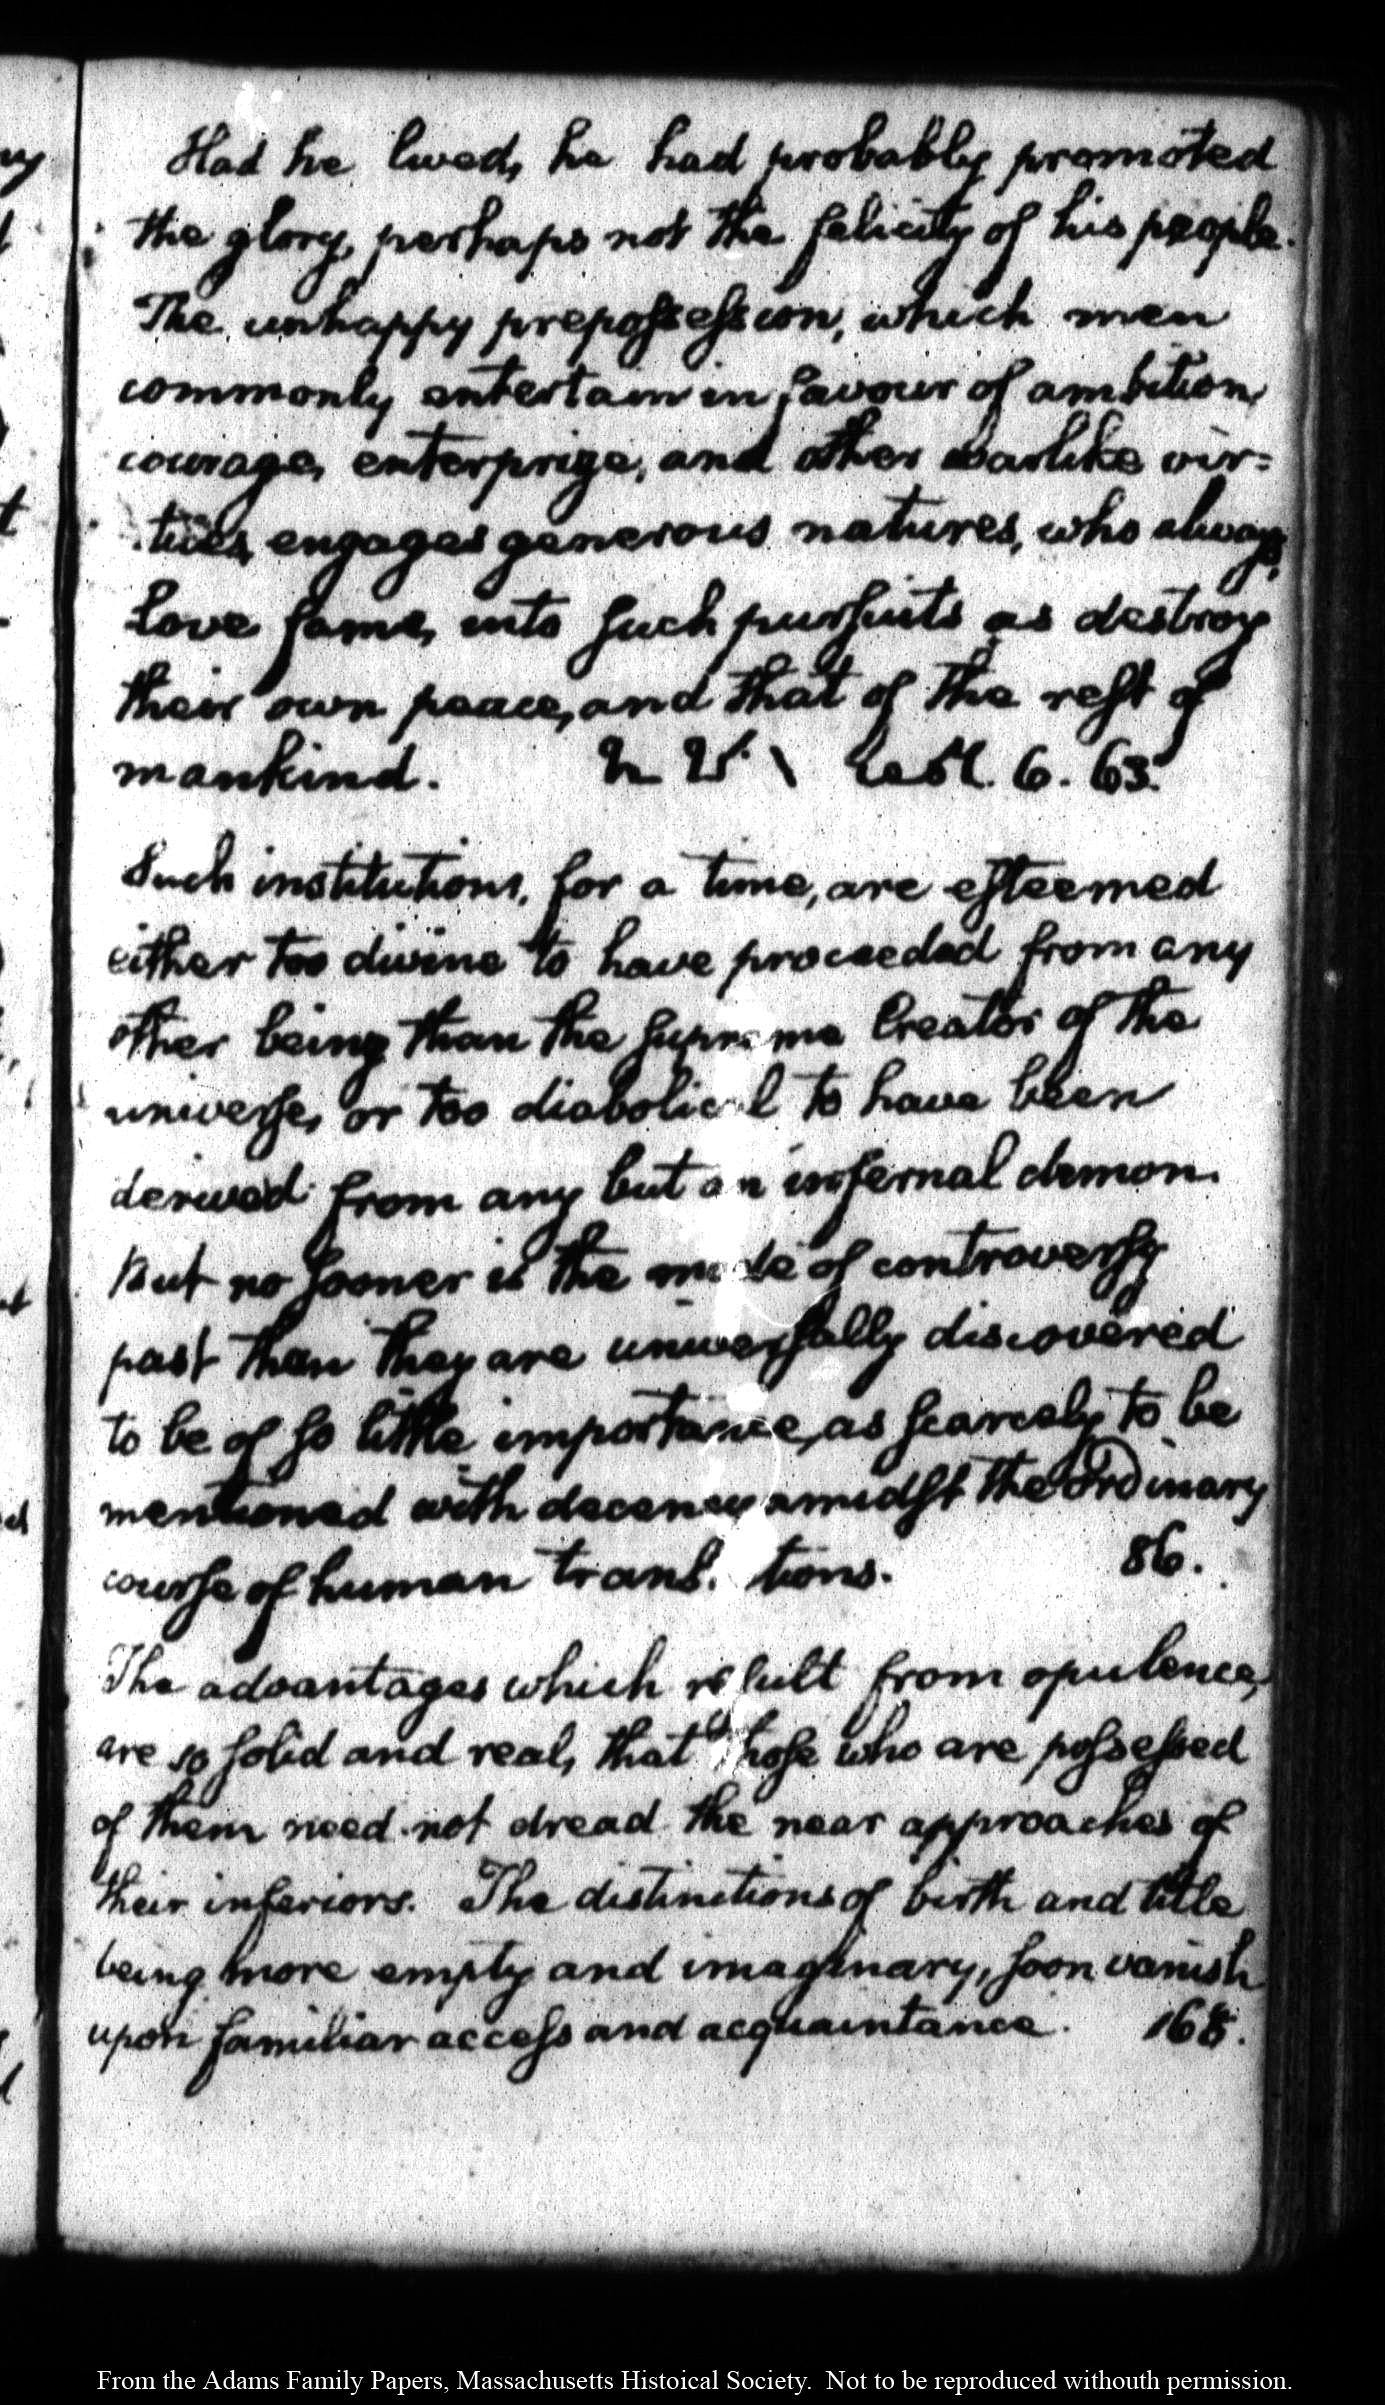 Had he lived, he had probably promoted
the glory, perhaps not the felicity of his people.
The unhappy prepossession, which men
commonly entertain in favour of ambition,
courage, enterprize, and other warlike vir=
tues, engages generous natures, who always
Love fame, into such pursuits as destroy
their own peace, and that of the rest of
mankind. 6. 63.
Such institutions, for a time, are esteemed
either too divine to have proceeded from any
other being than the supreme Creator of the
universe, or too diabolical to have been
derived from any but an infernal demon.
But no sooner is the mode of controversy
past than they are universally discovered
to be of so little importance, as scarcely to be
mentioned with decency amidst the ordinary
course of human trans tions. 86.
The advantages which result from opulence,
are so solid and real, that those who are possessed
of them need not dread the near approaches of
their inferiors. The distinctions of birth and title
being more empty and imaginary, soon vanish
upon familiar access and acquaintance. 168.
From the Adams Family Papers, Massachusetts Histoical Society. Not to be reproduced withouth permission.